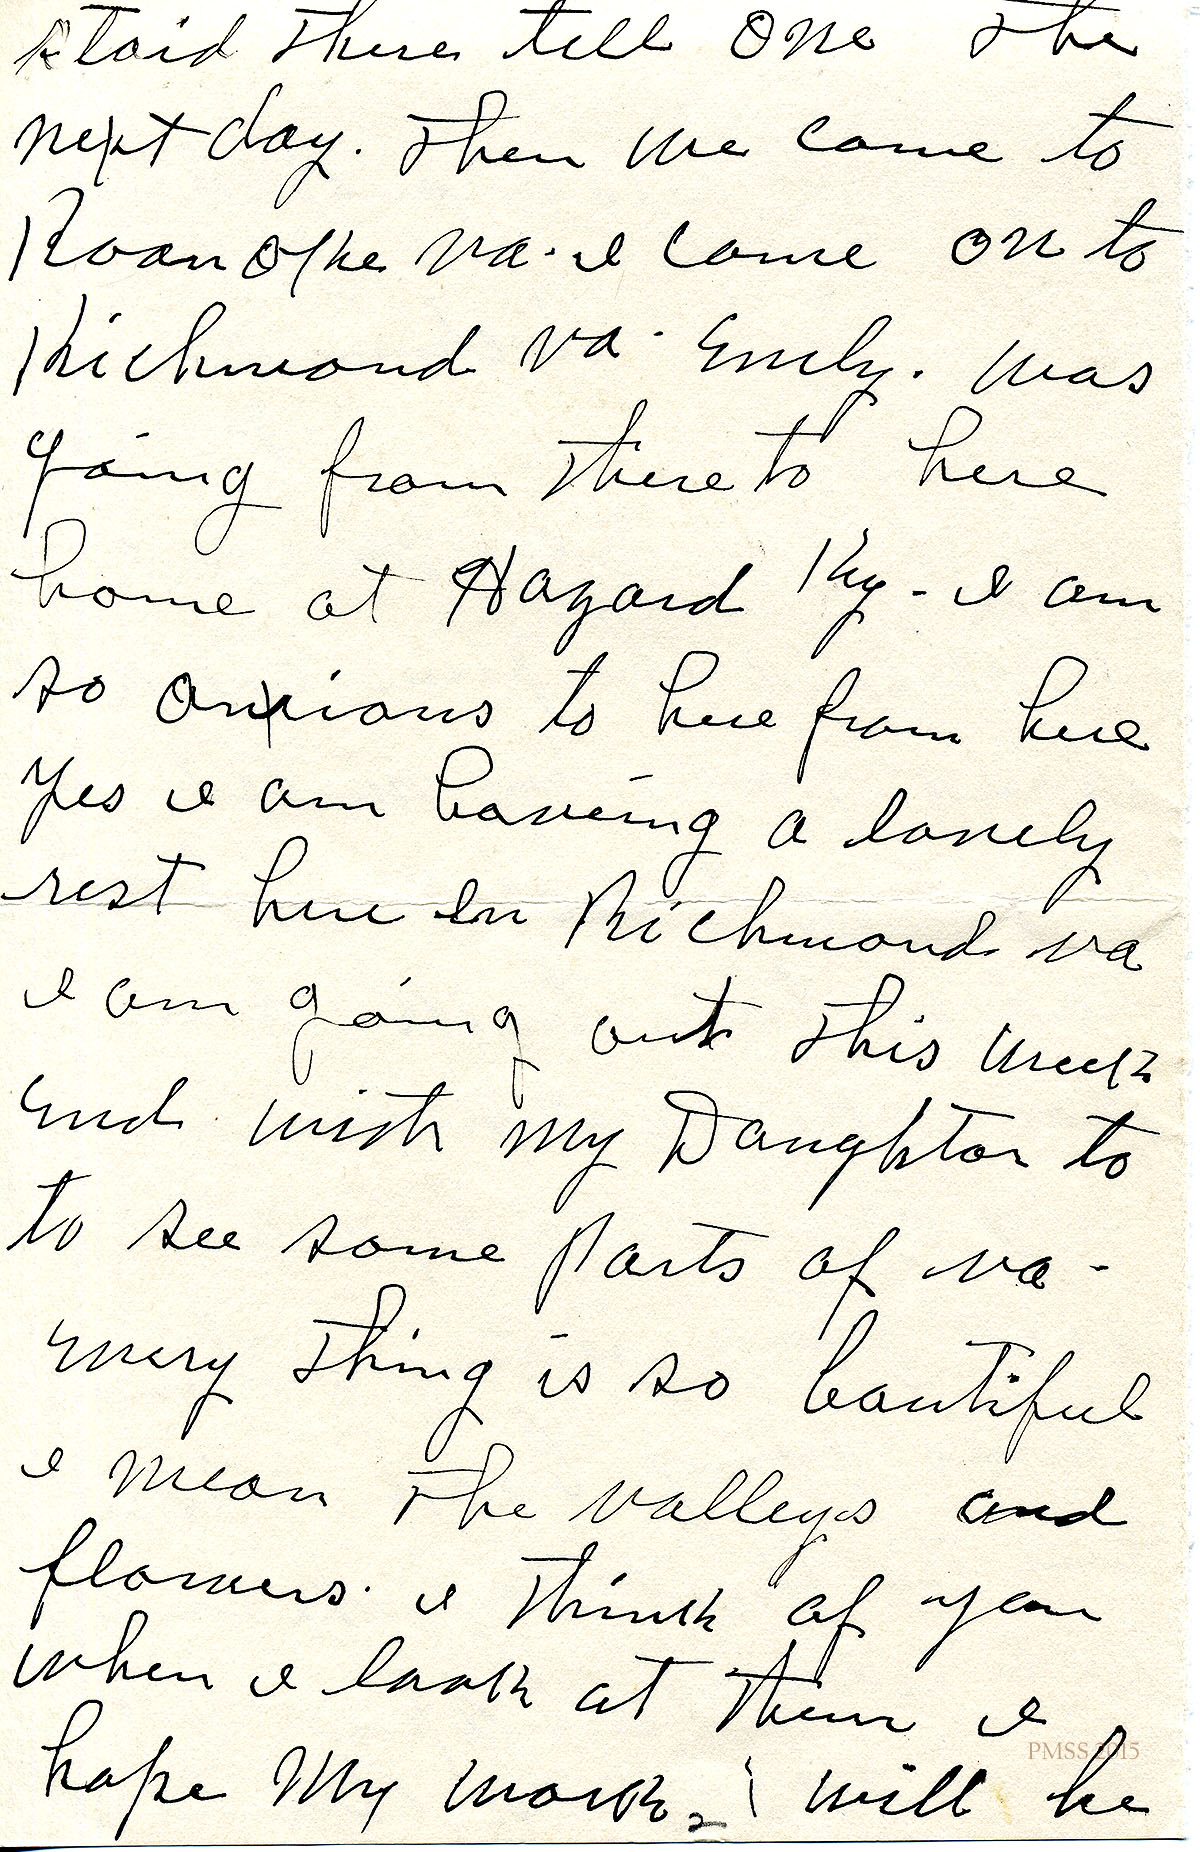 staid there till one the
next day. Then we come to
Roanoke va. I come on to
Richmond va. Emily. was
going from there to here
home at Hazard Ky - I am
so anxious to here from here
Yes I am haveing a lovely
rest here in Richmond va
I am going out this week
end with my Daughter to
to see some Parts of va -
every thing is so beautiful
I mean the valleys and
flowers. I think of you
when I look at them I
hope My work will be
2
PMSS 2015